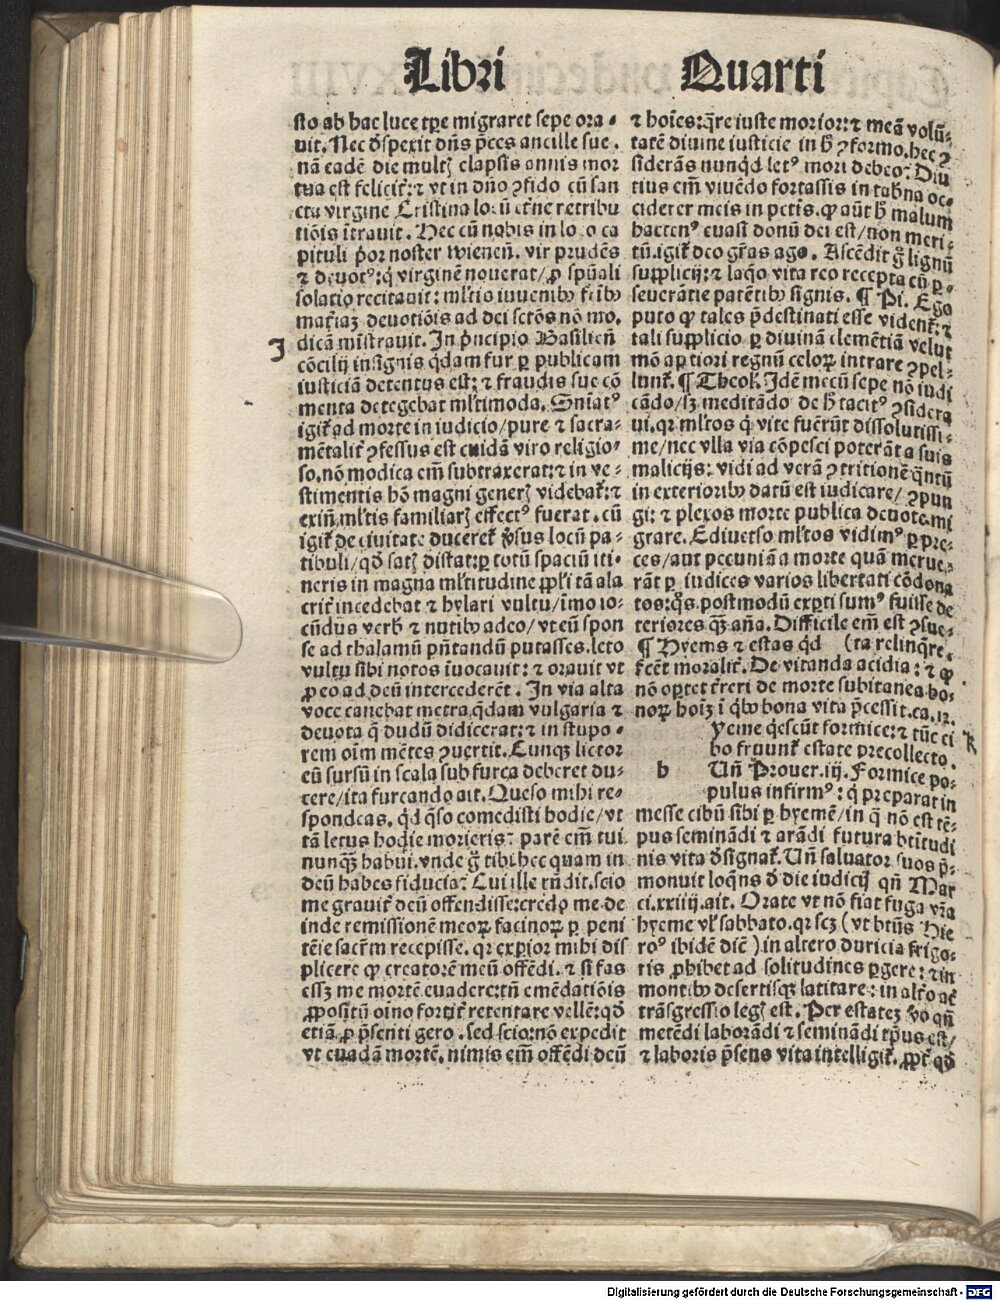 Libri Quarti
sto ab hac luce tꝑe migraret sepe ora⸗
uit. Nec dſpexit dñs p̄ces ancille sue.
nā eadē die multꝫ elapsis annis mor
tua est felicit᷑: ⁊ vt in dño ꝯfido cū san
cta virgine Cristina locū et᷑ne retribu
tiōis ītrauit. Hec cū nobis in loco ca
pituli p̓or noster wienen̄. vir prudēs
⁊ deuotꝰ: q̓ virginē nouerat/ꝓ sp̄uali
solatio recitauit: ml̓tio iuuenibꝫ fr̄ibꝫ
mat̓iaꝫ deuotiōis ad dei sctōs nō mo.
J
dicā mīstrauit. In p̓ncipio Basilien̄
cōcilij insignis q̓dam fur ꝑ publicam
iusticiā detentus est: ⁊ fraudis sue cō
menta detegebat ml̓timoda. Sn̄iatꝰ
igit᷑ ad morte in iudicio/pure ⁊ sacra⸗
mētalit᷑ ꝯfessus est cuidā viro religio⸗
so. nō modica em̄ subtraxerat: ⁊ in ve⸗
stimentis hō magni generꝫ videbat᷑: ⁊
exin̄ ml̓tis familiarꝫ effectꝰ fuerat. cū
igit᷑ de ciuitate duceret᷑ v̓sus locū pa⸗
tibuli/qd̓ satꝫ distat: ꝑ totū spaciū iti⸗
neris in magna ml̓titudine pp̓li tā ala
crit᷑ incedebat ⁊ hylari vultu/īmo io⸗
cūdus verbꝫ ⁊ nutibꝫ adeo/vt eū spon
se ad thalamū pn̄tandū putasses. leto
vultu sibi notos īuocauit: ⁊ orauit vt
ꝓ eo ad deū intercederēt. In via alta
voce canebat metra q̓dam vulgaria ⁊
deuota q̄ dudū didicerat: ⁊ in stupo⸗
rem oīm mētes ꝯuertit. Cunqꝫ lictor
eū sursū in scala sub furca deberet du⸗
cere/ita furcando ait. Queso mihi re⸗
spondeas. qd̓ q̄so comedisti hodie/vt
tā letus hodie morieris? parē em̄ tui
nunqꝫ habui. vnde g̊ tibi hec quam in
deū habes fiducia? Cui ille rn̄dit. scio
me grauit᷑ deū offendisse: credo me de
inde remissionē meoꝝ facinoꝝ ꝑ peni
tētie sacr̄m recepisse. qr experior mihi dis
plicere ꝙ creatorē meū offēdi. ⁊ si fas
essꝫ me mortē euadere: tn̄ emēdatiōis
ꝓpositū oīno fortit᷑ retentare vellē: qd̓
etiā ꝓ p̓senti gero. sed scio: nō expedit
vt euadā mortē. nimis em̄ offēdi deū
⁊ hoīes: q̄re iuste morior: ⁊ meā volū⸗
tatē diuine iusticie in hꝫ ꝯformo. hec ꝯ
siderās nunqd̓ letꝰ mori debeo? Diu
tius em̄ viuēdo fortassis in tab̓na oc⸗
ciderer meis in pctīs. ꝙ aūt hꝫ malum
hactenꝰ euasi donū dei est/non meri⸗
tū. igit᷑ deo gr̄as ago. Ascēdit g̊ lignū
supplicij: ⁊ laq̓o vita reo recepta cū ꝑ⸗
seuerātie patētibꝫ signis. ¶ Pi. Ego
puto ꝙ tales p̄destinati esse vident᷑: ⁊
tali supplicio ꝑ diuinā clemētiā velut
mō aptiori regnū celoꝝ intrare ꝯpel⸗
lunt᷑. ¶ Theol᷑. Idē mecū sepe nō iudi
cādo/sꝫ meditādo de hꝫ tacitꝰ ꝯsidera
ui. qr ml̓tos q̓ vite fuerūt dissolutissi⸗
me/nec vlla via cōpesci poterāt a suis
malicijs: vidi ad verā ꝯtritionē q̄ntū
in exterioribꝫ datū est iudicare/ ꝯpun
gi: ⁊ plexos morte publica deuote mi
grare. Ediuerso ml̓tos vidimꝰ ꝑ pre⸗
ces/aut pecuniā a morte quā merue⸗
rāt ꝑ iudices varios libertati cōdona
tos: q̓s postmodū exꝑti sumꝰ fuisse de
teriores qꝫ an̄a. Difficile em̄ est ꝯsue⸗
¶ Hyems ⁊ estas qd̓ (ta relinq̄re.
fr̄cēt moralit᷑. De vitanda acidia: ⁊ ꝙ
nō oꝑtet t᷑reri de morte subitanea bo⸗
noꝝ hoīꝫ ī q̓bꝫ bona vita p̄cessit. ca. 12.
yeme q̓escūt formice: ⁊ tūc ci
K
bo fruunt᷑ estate precollecto.
b Vn̄ Prouer. iij. Formice po⸗
pulus infirmꝰ: q̓ preparat in
messe cibū sibi ꝑ hyemē/in q̄ nō est tē⸗
pus seminādi ⁊ arādi futura btītudi
nis vita dſignat᷑. Vn̄ saluator suos p̄⸗
monuit loq̄ns d̓ die iudicij qn̄ Mar
ci. xxiiij. ait. Orate vt nō fiat fuga vr̄a
hyeme vl̓ sabbato. qr scꝫ (vt btūs Hie
roꝰ ibidē dic̄) in altero duricia frigo⸗
ris ꝓhibet ad solitudines ꝑgere: ⁊ in
montibꝫ desertisqꝫ latitare: in alt᷑o at̄
trāsgressio legꝫ est. Per estateꝫ v̊o qn̄
metēdi laborādi ⁊ seminādi tꝑus est/
⁊ laboris p̓sens vita intelligit᷑. ꝓpt᷑ qd̓
Digitalisierung gefördert durch die Deutsche Forschungsgemeinschaft - DFG